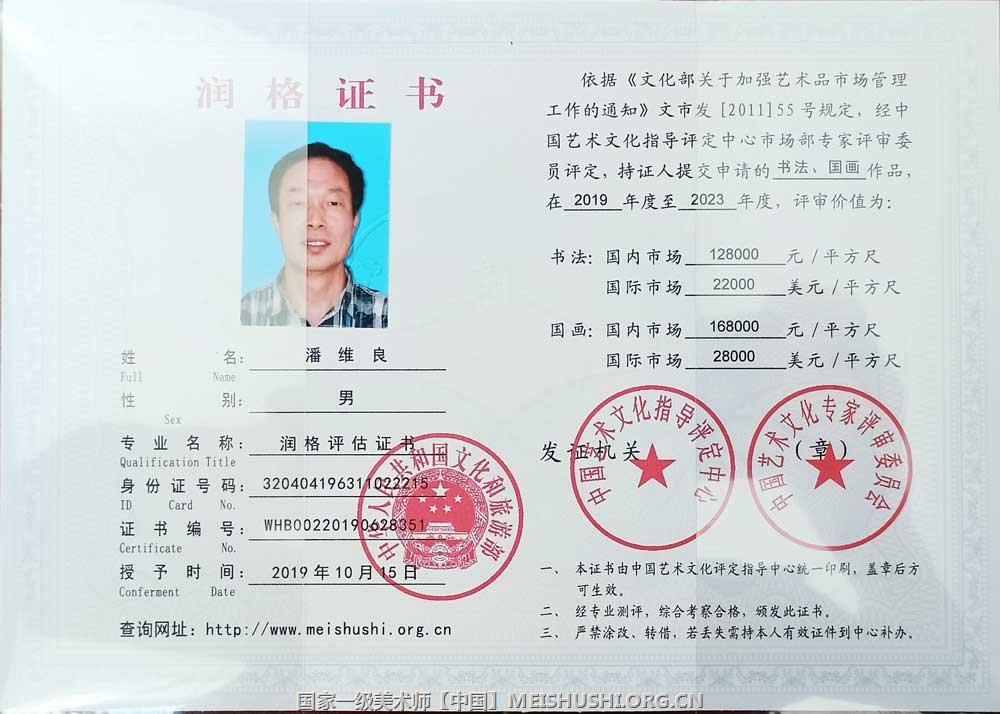 润格证书
姓名: 潘维良
Full Name
性别: 男
Sex
专业名称: 润格评估证书
Qualification Title
身份证号码: 320404196311022215
ID Card No.
证书编号: WHB00220190628351
Certificate No.
授予时间: 2019年10月15日
Conferment Date
查询网址: http://www.meishushi.org.cn
中华人民共和国文化和旅游部
依据《文化部关于加强艺术品市场管理
工作的通知》文市发[2011]55号规定,经中
国艺术文化指导评定中心市场部专家评审委
员评定,持证人提交申请的书法、国画作品,
在2019年度至2023年度,评审价值为:
书法: 国内市场 128000 元/平方尺
国际市场 22000 美元/平方尺
国画: 国内市场 168000 元/平方尺
国际市场 28000 美元/平方尺
发证机关 (章)
中国艺术文化指导评定中心
中国艺术文化专家评审委员会
一、 本证书由中国艺术文化评定指导中心统一印刷,盖章后方
可生效。
二、 经专业测评,综合考察合格,颁发此证书。
三、 严禁涂改、转借,若丢失需持本人有效证件到中心补办。
国家一级美术师【中国】MEISHUSHI.ORG.CN